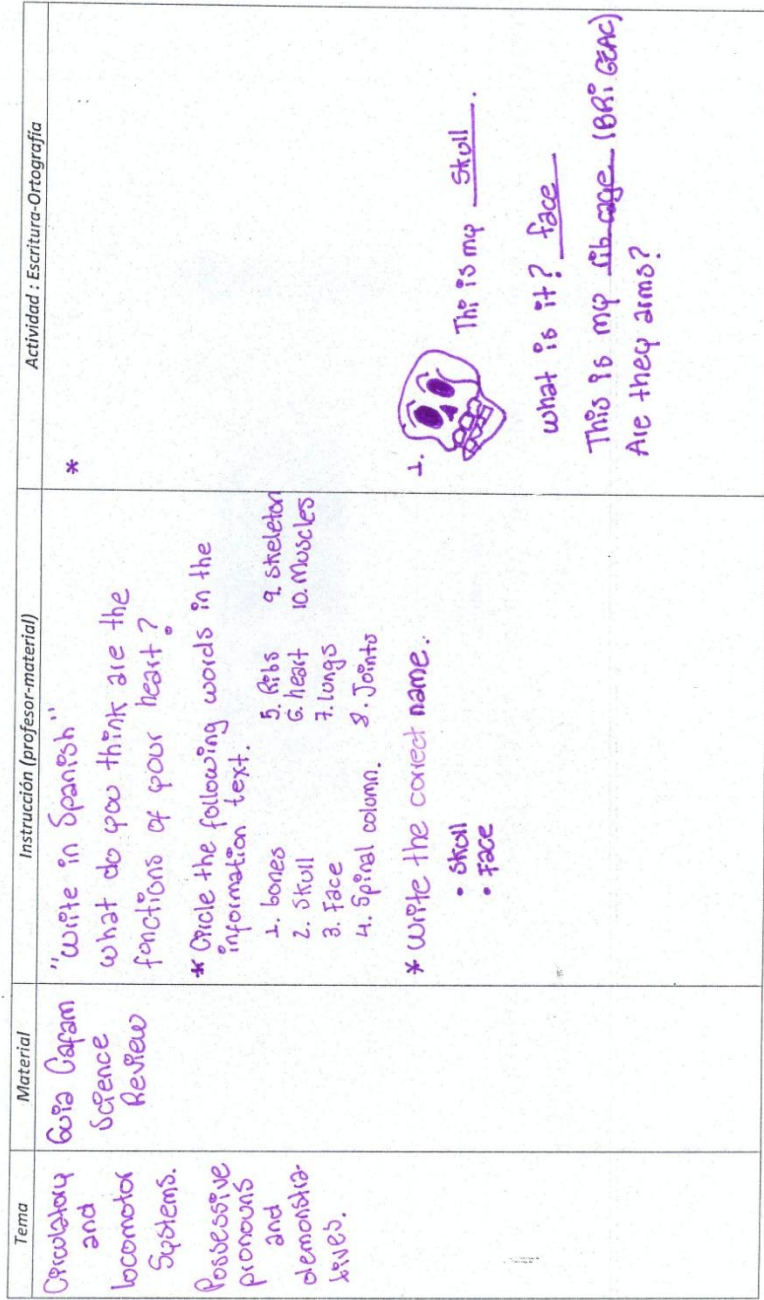 Tema
Material
Instrucción (profesor-material)
Actividad : Escritura-Ortografía
Circulatory
and
locomotor
Systems.
Possessive
pronouns
and
demonstra-
tives.
Guia Cafam
Science
Review
"Write in Spanish"
what do you think are the
functions of your heart?
* Circle the following words in the
information text.
1. bones
2. Skull
3. Face
4. Spinal column.
5. Ribs
6. heart
7. lungs
8. Joints
9. Skeleton
10. Muscles
* Write the correct name.
• Skull
• Face
*
1.
Thi is my Skull.
what is it? face
This is my rib cage (BRi GEAC)
Are they arms?